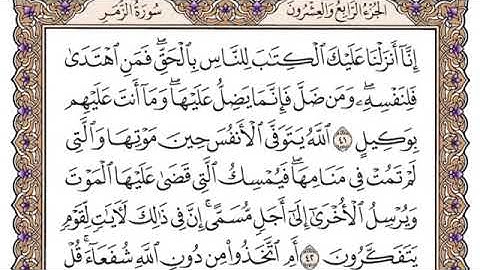 الجزء الرابع والعشرون
سورة الزمر
إِنَّآ أَنزَلْنَا عَلَيْكَ ٱلْكِتَٰبَ لِلنَّاسِ بِٱلْحَقِّ ۖ فَمَنِ ٱهْتَدَىٰ
فَلِنَفْسِهِۦ ۖ وَمَن ضَلَّ فَإِنَّمَا يَضِلُّ عَلَيْهَا ۖ وَمَآ أَنتَ عَلَيْهِم
بِوَكِيلٍ ٤١ ٱللَّهُ يَتَوَفَّى ٱلْأَنفُسَ حِينَ مَوْتِهَا وَٱلَّتِى
لَمْ تَمُتْ فِى مَنَامِهَا ۖ فَيُمْسِكُ ٱلَّتِى قَضَىٰ عَلَيْهَا ٱلْمَوْتَ
وَيُرْسِلُ ٱلْأُخْرَىٰٓ إِلَىٰٓ أَجَلٍ مُّسَمًّى ۚ إِنَّ فِى ذَٰلِكَ لَءَايَٰتٍ لِّقَوْمٍ
يَتَفَكَّرُونَ ٤٢ أَمِ ٱتَّخَذُوا۟ مِن دُونِ ٱللَّهِ شُفَعَآءَ ۚ قُلْ